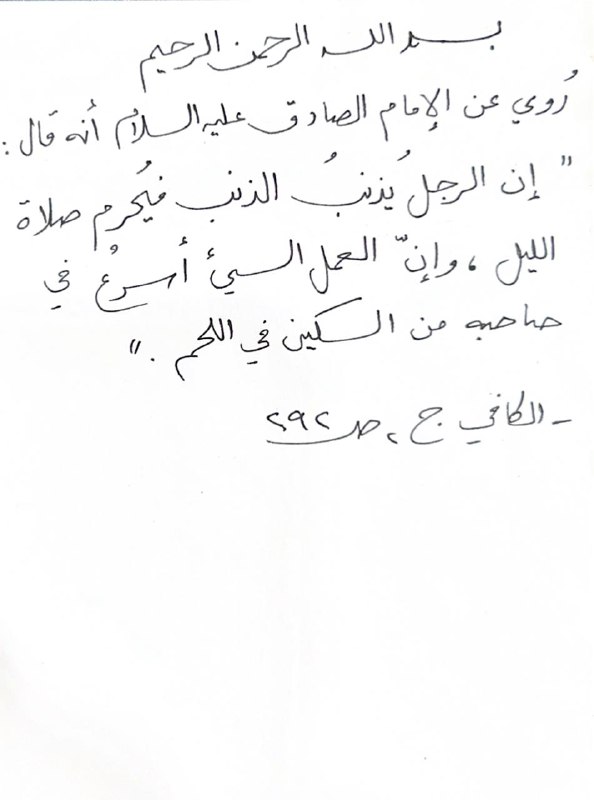 بسم الله الرحمن الرحيم
رُوي عن الإمام الصادق عليه السلام أنه قال :
" إن الرجل يُذنبُ الذنب فيُحرم صلاة
الليل ، وإنّ العمل السيئ أسرعُ في
صاحبه من السكين في اللحم . "
- الكافي ج ٢ ص ٢٩٢